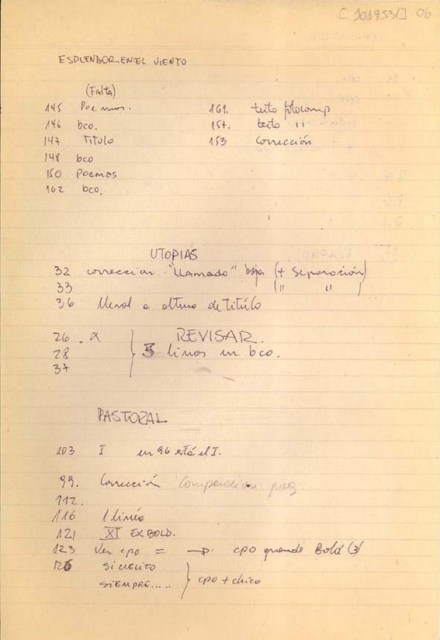 [101953/] 06
ESPLENDOR EN EL VIENTO
(Falta)
145 Poemas.
146 bco.
147 Titulo
148 bco
150 Poemas
162 bco.
161. texto fotocomp
154. texto "
153 Corrección
UTOPIAS
32 corrección "llamado" baja (+ Separación)
33 (" ")
36 a altura de título
26 . X REVISAR.
28 3 lineas en bco.
37
PASTORAL
103 I en 96 está el I.
99. Corrección Comparación pag
112.
116 1 linea
121 XI EX BOLD.
123 Ver cpo = cpo grande Bold (3)
126
SIEMPRE..... cpo + chico